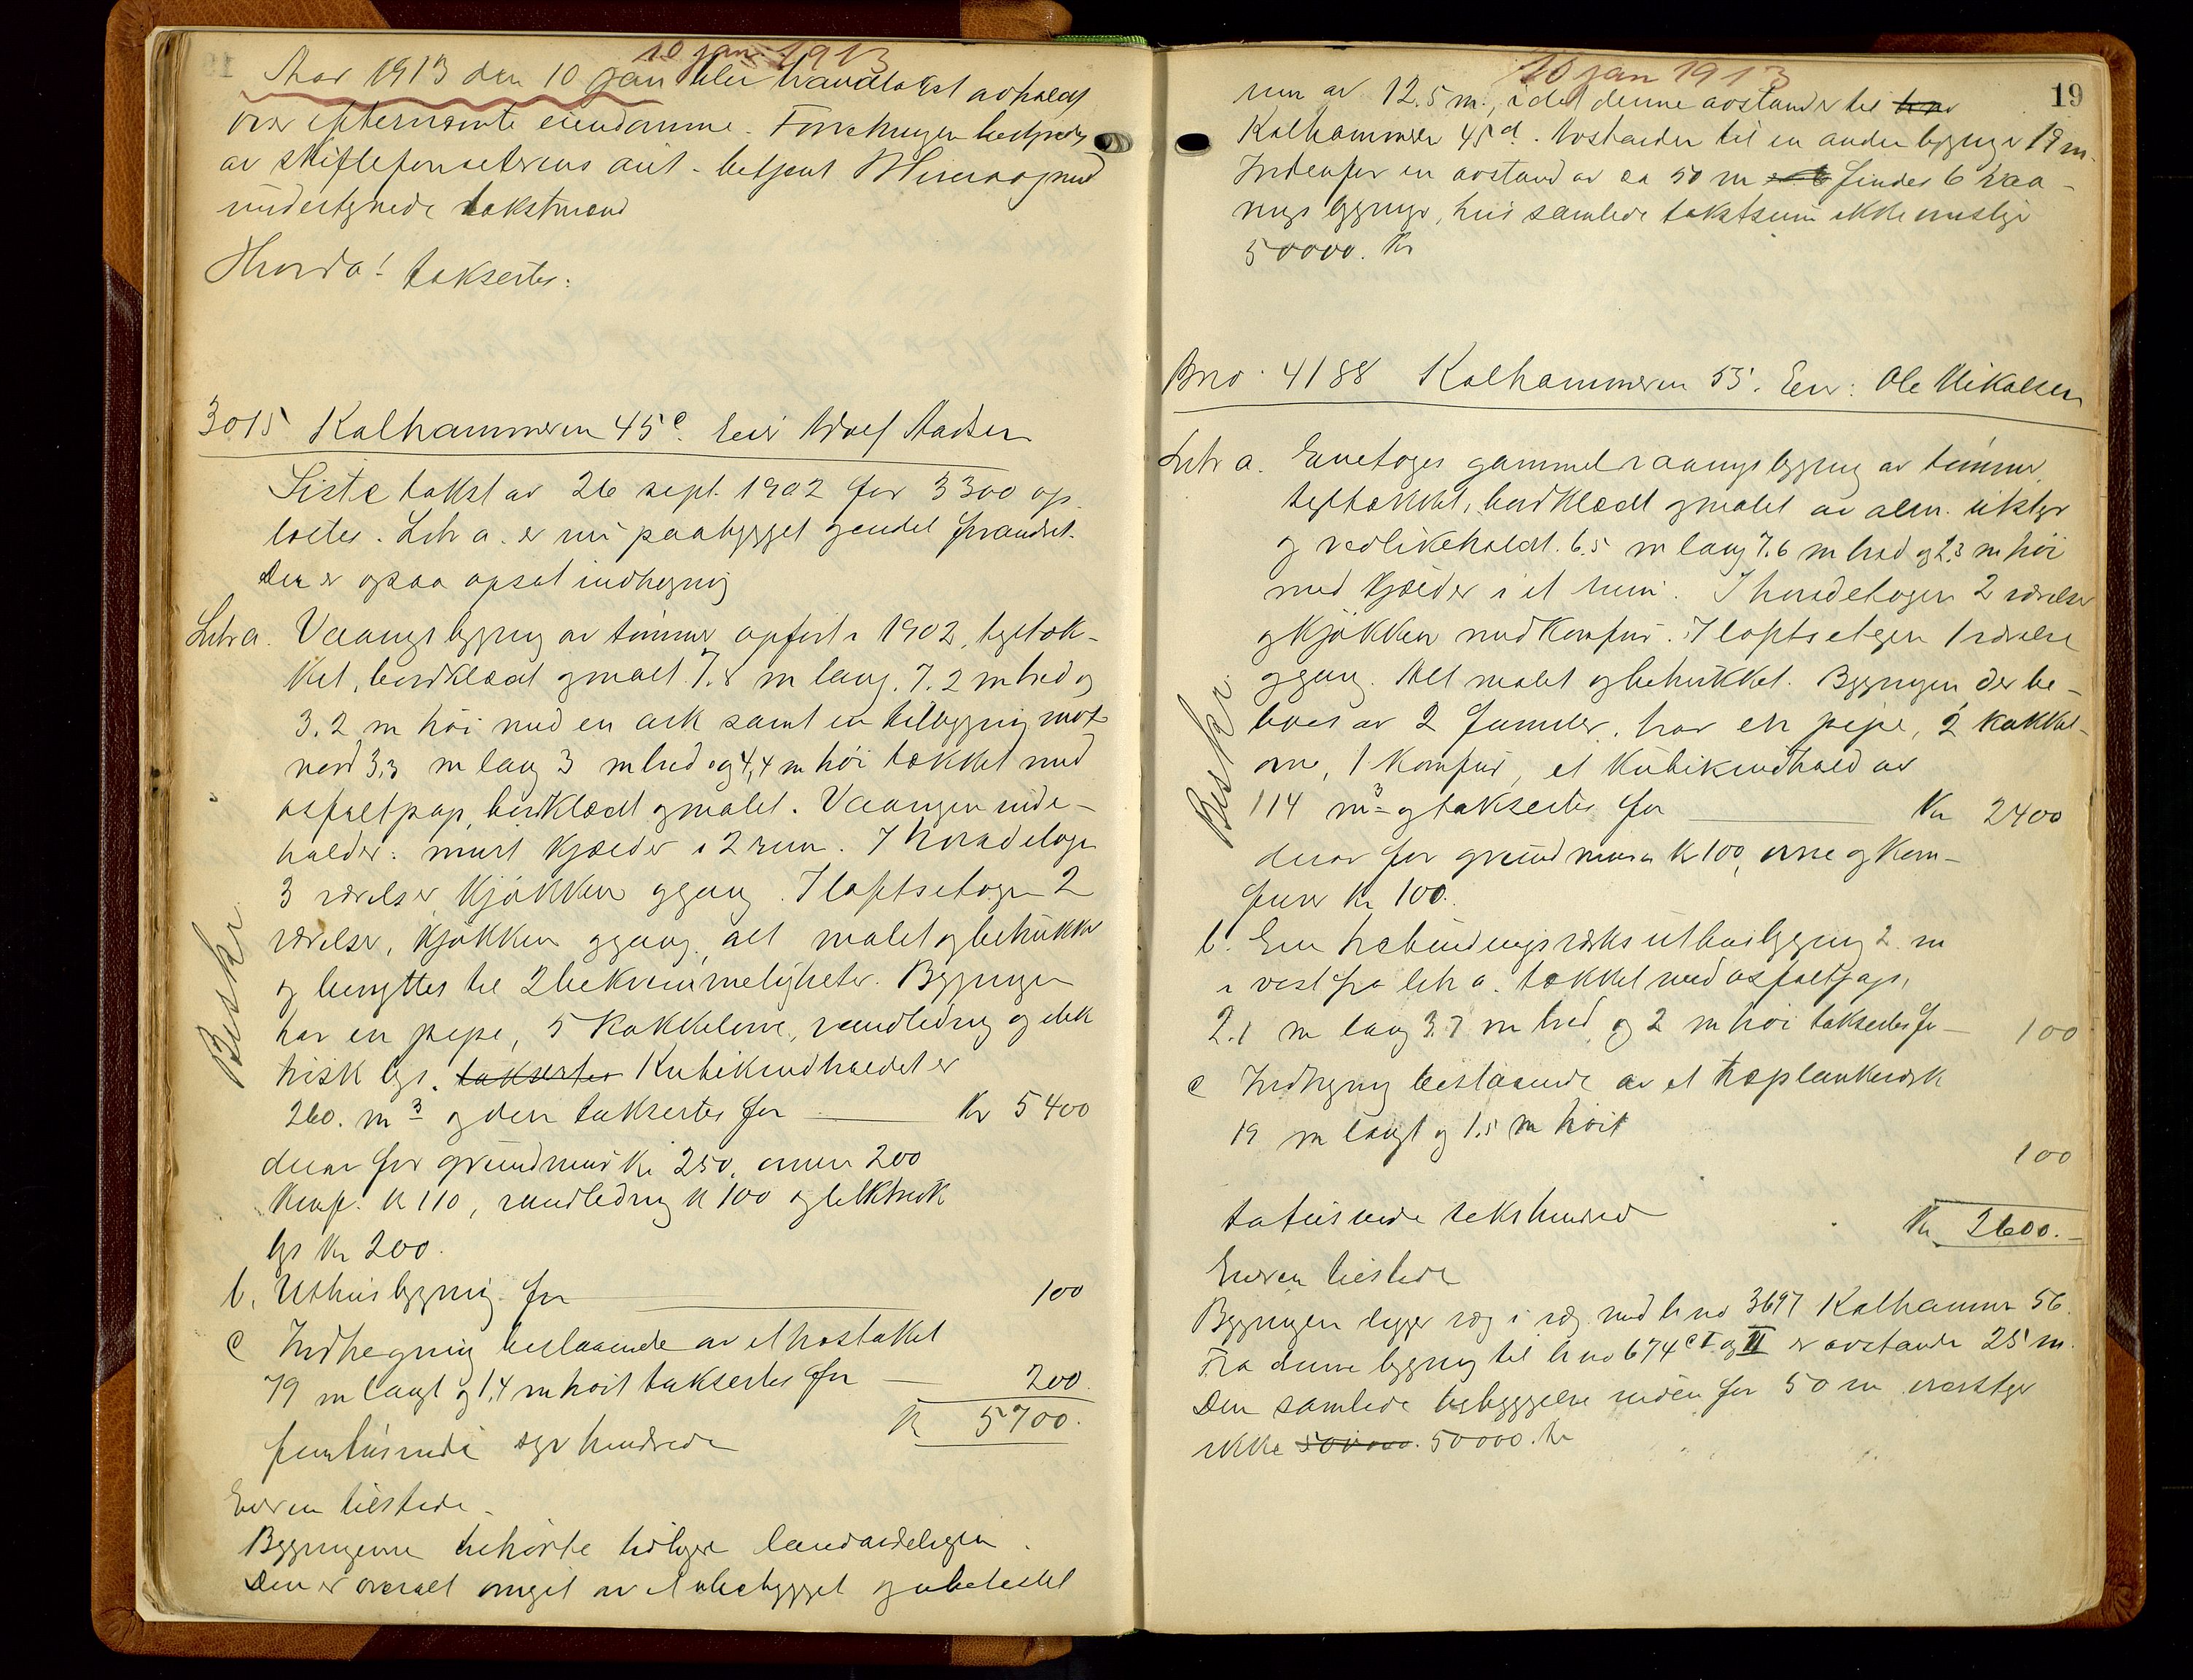 10 jan 1913
Aar 1913 den 10 jan blev brandtakst avholdt
over efternævnte eiendomme. Forretningen bestyredes
av skifteforvalterens aut. betjent og
undertegnede takstmænd
Hvorda! taksertes:
3015 Kalhammeren 45c. Eier Adolf Madsen
Siste takst av 26 sept. 1902 for 3300 op-
læstes. Litr a. er nu paabygget og endel forandret.
Der er ogsaa opsat indhegning
Litr a. Vaaningsbygning av tømmer opført i 1902, tegltæk-
ket, bordklædt og malt 7.8 m lang, 7.2 m bred og
3.2 m høi med en ark samt en tilbygning mot
nord 3,3 m lang 3 m bred og 4,4 m høi tækket med
asfaltpap, bordklædt og malet. Vaaningen inde-
holder: murt kjælder i 2 rum. I hovedetagen
3 værelser kjøkken og gang. I loftsetagen 2
værelser, kjøkken og gang, alt malet og betrukket
og benyttes til 2 bekvemmeligheter. Bygningen
har en pipe, 5 kakkelovne, vandledning og elek
trisk lys. taksertes Kubikindholdet er
260. m3 og den taksertes for Kr 5400
derav for grundmur kr 250, ovnen 200
Komf. kr 110, vandledning kr 100 og elektrisk
lys kr 200.
Beskr.
b. Uthusbygning for 100
c Indhegning bestaaende av et træstaket
79 m langt og 1.4 m høit taksertes for 200.
Kr 5700.
femtusinde syv hundrede
Eieren tilstede.
Bygningerne tilhørte tidligere landavdelingen.
Den er overalt omgit av et ubebygget og ubelastet
10 jan 1913
19
rum av 12.5 m., idet denne avstand er til
Kalhammer 45d. Avstanden til en anden bygning er 19 m.
Indenfor en avstand av ca 50 m findes 6 vaa-
nings bygninger, hvis samlede takstsum ikke overstiger
50000. Kr
Bno. 4188 Kalhammeren 55. Eier: Ole Mikalsen
Litr a. Enetages gammel vaaningsbygning av tømmer,
tegltækket, bordklædt og malet av alm. utstyr
og vedlikeholdt. 6.5 m lang 7.6 m bred og 2.3 m høi
med kjælder i et rum. I hovedetagen 2 værelser
og kjøkken med komfur. I loftsetagen 1 værelse
og gang. Alt malet og betrukket. Bygningen, der be-
boes av 2 familier, har en pipe, 2 kakkel-
ovne, 1 komfur, et kubikindhold av
114 m3 og taksertes for Kr 2400
derav for grundmuren kr 100, ovne og kom-
furer kr 100.
Beskr.
b. En træbindingsværks uthusbygning 2 m
i vest fra litr a. tækket med asfaltpap,
2.1 m lang 3.7 m bred og 2 m høi taksertes for 100
c Indhegning bestaaende av et træplankeverk
19 m langt og 1.5 m høit
100
totusinde sekshundred Kr 2600.-
Eieren tilstede
Bygningen ligger væg i væg med br no 3697 Kalhammer 56.
Fra denne bygning til br no 674 c I og II er avstanden 25 m.
Den samlede bebyggelse inden for 50 m overstiger
ikke 500000. 50000. kr